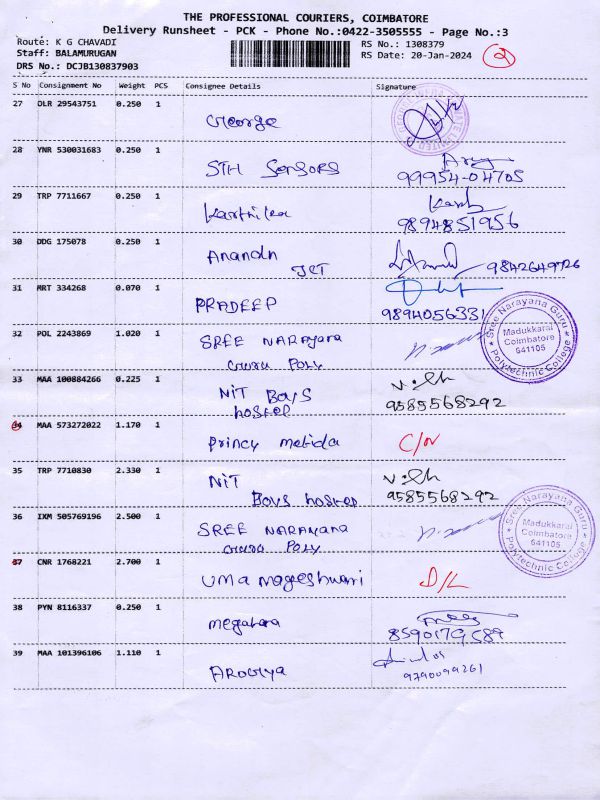 THE PROFESSIONAL COURIERS, COIMBATORE
Delivery Runsheet - PCK - Phone No.:0422-3505555 - Page No.:3
Route: K G CHAVADI
RS No.: 1308379
Staff: BALAMURUGAN
RS Date: 20-Jan-2024
2
DRS No.: DCJB130837903
S No Consignment No Weight PCS Consignee Details Signature
27 DLR 29543751 0.250 1
George
28 YNR 530031683 0.250 1
STH Sensors
99954-04705
29 TRP 7711667 0.250 1
Karthika
9894851956
30 DDG 175078 0.250 1
Anandn
JCT
9842649726
31 MRT 334268 0.070 1
PRADEEP
9894056331
32 POL 2243869 1.020 1
SREE NARAyana
Guru Poly
Sree Narayana Guru
Madukkarai
Coimbatore
641105
Polytechnic College
33 MAA 100884266 0.225 1
NiT Boys
hostel
9585568292
34 MAA 573272022 1.170 1
princy melida
35 TRP 7710830 2.330 1
NiT
Boys hostel
9585568292
36 IXM 505769196 2.500 1
SREE NARAYANA
Guru Poly
Sree Narayana Guru
Madukkarai
Coimbatore
641105
Polytechnic College
37 CNR 1768221 2.700 1
UMA mageshwari
D/L
38 PYN 8116337 0.250 1
megahara
39 MAA 101396106 1.110 1
AROCIYA
9790099261